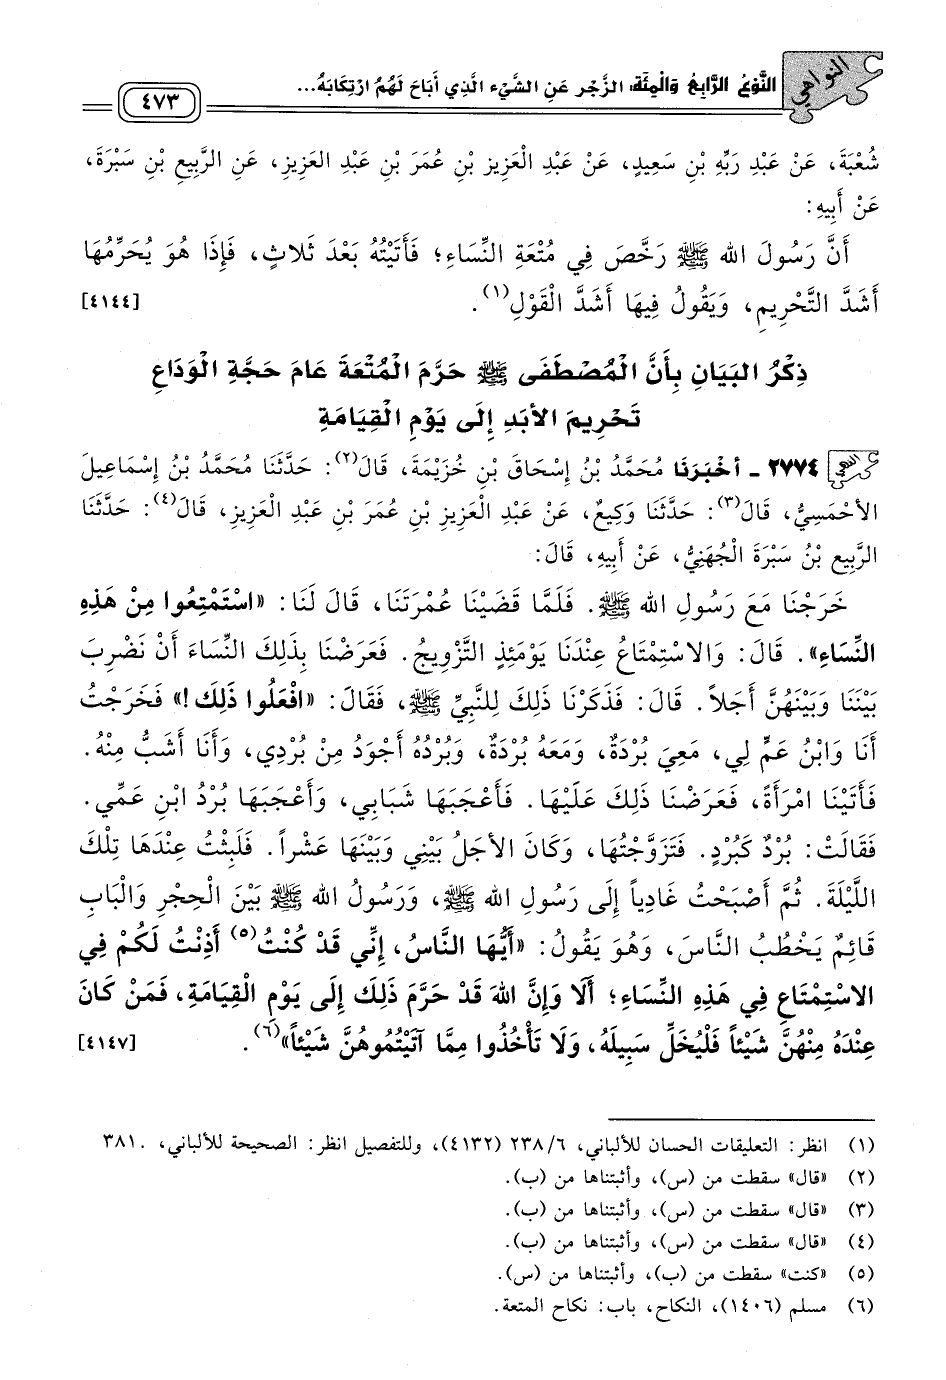 النواهي
النَّوْعُ الرَّابِعُ وَالْمِئَة: الزَّجْر عَنِ الشَّيْء الَّذِي أَبَاحَ لَهُمُ ارْتِكَابَهُ...
٤٧٣
شُعْبَةَ، عَنْ عَبْدِ رَبِّهِ بْنِ سَعِيدٍ، عَنْ عَبْدِ الْعَزِيزِ بْنِ عُمَرَ بْنِ عَبْدِ العَزِيزِ، عَنِ الرَّبِيعِ بْنِ سَبْرَةَ،
عَنْ أَبِيهِ:
أَنَّ رَسُولَ اللهِ ﷺ رَخَّصَ فِي مُتْعَةِ النِّسَاءِ؛ فَأَتَيْتُهُ بَعْدَ ثَلَاثٍ، فَإِذَا هُوَ يُحَرِّمُهَا
أَشَدَّ التَّحْرِيمِ، وَيَقُولُ فِيهَا أَشَدَّ الْقَوْلِ(١). [٤١٤٤]
ذِكْرُ البَيَانِ بِأَنَّ الْمُصْطَفَى ﷺ حَرَّمَ الْمُتْعَةَ عَامَ حَجَّةِ الْوَدَاعِ
تَحْرِيمَ الأَبَدِ إِلَى يَوْمِ الْقِيَامَةِ
٢٧٧٤ - أَخْبَرَنَا مُحَمَّدُ بْنُ إِسْحَاقَ بْنِ خُزَيْمَةَ، قَالَ(٢): حَدَّثَنَا مُحَمَّدُ بْنُ إِسْمَاعِيلَ
الأَحْمَسِيُّ، قَالَ(٣): حَدَّثَنَا وَكِيعٌ، عَنْ عَبْدِ الْعَزِيزِ بْنِ عُمَرَ بْنِ عَبْدِ الْعَزِيزِ، قَالَ(٤): حَدَّثَنَا
الرَّبِيعُ بْنُ سَبْرَةَ الْجُهَنِيُّ، عَنْ أَبِيهِ، قَالَ:
خَرَجْنَا مَعَ رَسُولِ اللهِ ﷺ. فَلَمَّا قَضَيْنَا عُمْرَتَنَا، قَالَ لَنَا: «اسْتَمْتِعُوا مِنْ هَذِهِ
النِّسَاءِ». قَالَ: وَالاسْتِمْتَاعُ عِنْدَنَا يَوْمَئِذٍ التَّزْوِيجُ. فَعَرَضْنَا بِذَلِكَ النِّسَاءَ أَنْ نَضْرِبَ
بَيْنَنَا وَبَيْنَهُنَّ أَجَلاً. قَالَ: فَذَكَرْنَا ذَلِكَ لِلنَّبِيِّ ﷺ، فَقَالَ: «افْعَلُوا ذَلِكَ!» فَخَرَجْتُ
أَنَا وَابْنُ عَمٍّ لِي، مَعِيَ بُرْدَةٌ، وَمَعَهُ بُرْدَةٌ، وَبُرْدُهُ أَجْوَدُ مِنْ بُرْدِي، وَأَنَا أَشَبُّ مِنْهُ.
فَأَتَيْنَا امْرَأَةً، فَعَرَضْنَا ذَلِكَ عَلَيْهَا. فَأَعْجَبَهَا شَبَابِي، وَأَعْجَبَهَا بُرْدُ ابْنِ عَمِّي.
فَقَالَتْ: بُرْدٌ كَبُرْدٍ. فَتَزَوَّجْتُهَا، وَكَانَ الأَجَلُ بَيْنِي وَبَيْنَهَا عَشْراً. فَلَبِثْتُ عِنْدَهَا تِلْكَ
اللَّيْلَةَ. ثُمَّ أَصْبَحْتُ غَادِياً إِلَى رَسُولِ اللهِ ﷺ، وَرَسُولُ اللهِ ﷺ بَيْنَ الْحِجْرِ وَالْبَابِ
قَائِمٌ يَخْطُبُ النَّاسَ، وَهُوَ يَقُولُ: «أَيُّهَا النَّاسُ، إِنِّي قَدْ كُنْتُ(٥) أَذِنْتُ لَكُمْ فِي
الاسْتِمْتَاعِ فِي هَذِهِ النِّسَاءِ؛ أَلَا وَإِنَّ اللهَ قَدْ حَرَّمَ ذَلِكَ إِلَى يَوْمِ الْقِيَامَةِ، فَمَنْ كَانَ
عِنْدَهُ مِنْهُنَّ شَيْئاً فَلْيُخَلِّ سَبِيلَهُ، وَلَا تَأْخُذُوا مِمَّا آتَيْتُمُوهُنَّ شَيْئاً»(٦). [٤١٤٧]
(١) انظر: التعليقات الحسان للألباني، ٢٣٨/٦ (٤١٣٢)، وللتفصيل انظر: الصحيحة للألباني، ٣٨١.
(٢) «قال» سقطت من (س)، وأثبتناها من (ب).
(٣) «قال» سقطت من (س)، وأثبتناها من (ب).
(٤) «قال» سقطت من (س)، وأثبتناها من (ب).
(٥) «كنت» سقطت من (ب)، وأثبتناها من (س).
(٦) مسلم (١٤٠٦)، النكاح، باب: نكاح المتعة.